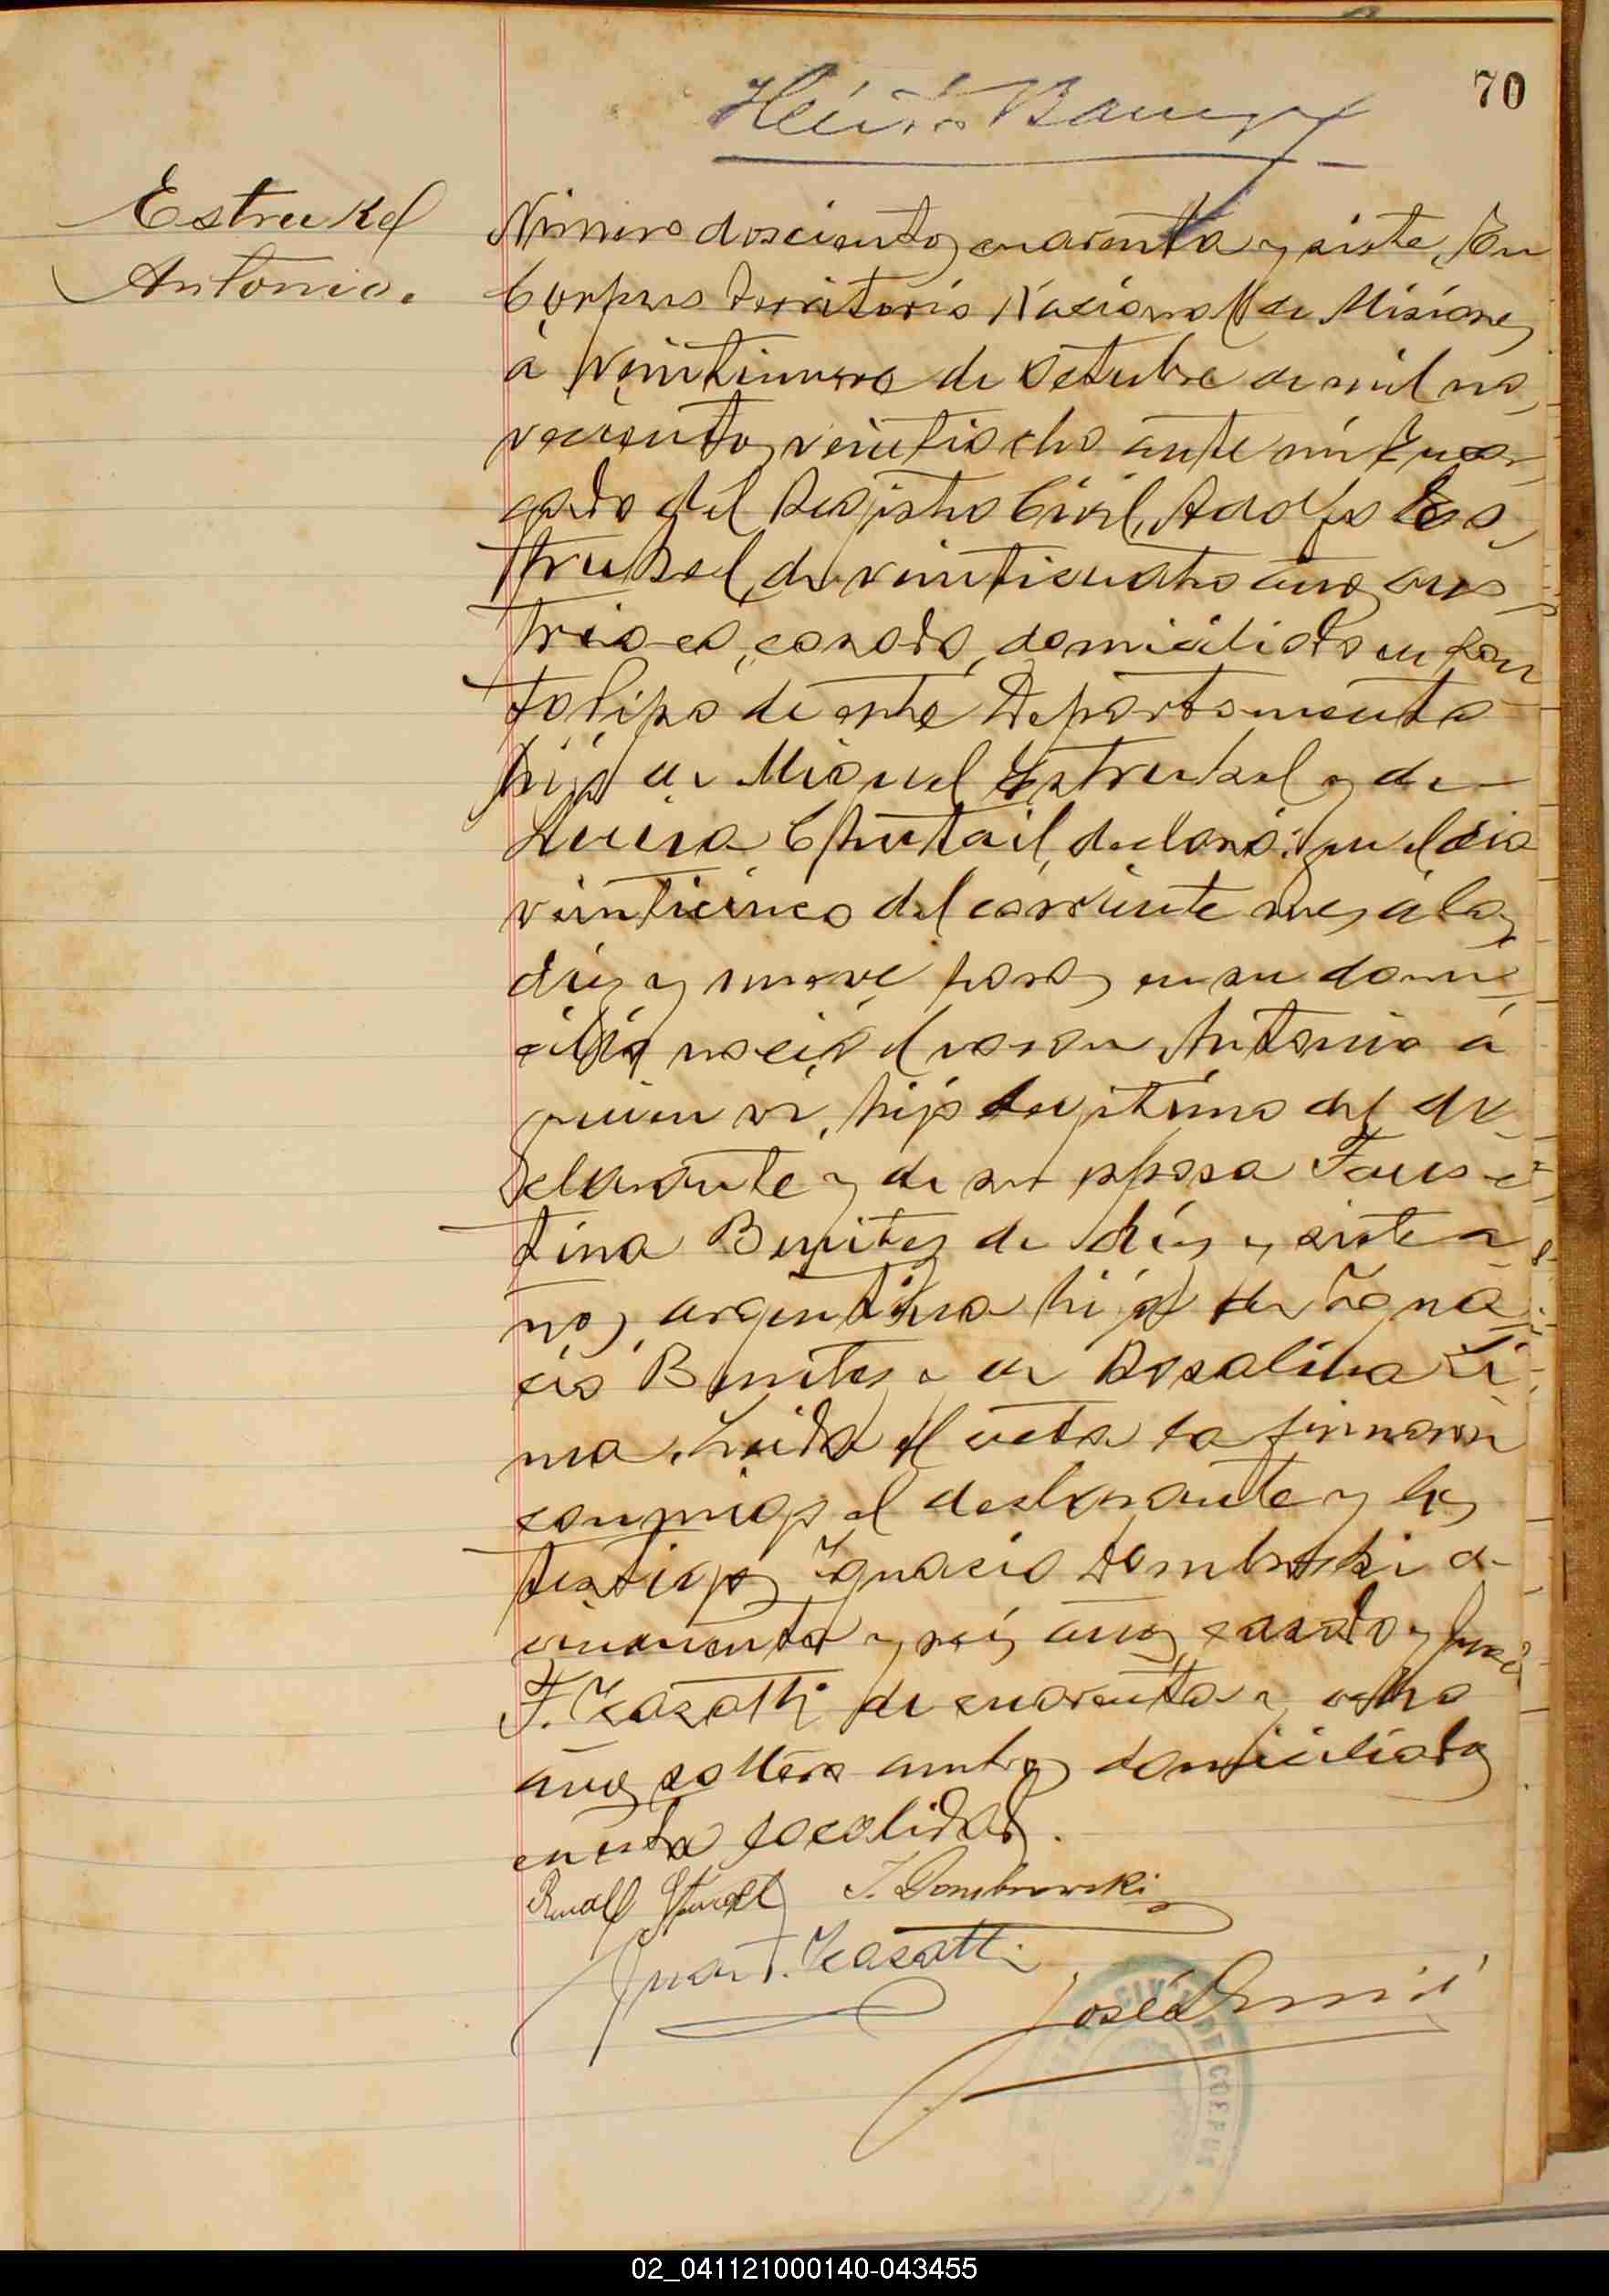 70
Estrukel
Antonio.
Número doscientos cuarenta y siete, En
Corpus Territorio Nacional de Misiones
a veintinueve de Octubre de mil no
vecientos veintiocho ante mí Encar
gado del Registro Civil, Adolfo Es
trukel, de veinticuatro años aus
triaco, casado, domiciliado en San
to Pipo de este Departamento
hijo de Miguel Estrukel y de
declaró: que el día
veinticinco del corriente mes a las
diez y nueve horas en su domi
cilio nació el varon Antonio a
quien vi, hijo legítimo del de
clarante y de su esposa Faus
tina Benitez de diez y siete a
ños, argentina hija de Igna
cio Benites y de Rosalina Li
ma. Leida el acta la firmaron
conmigo el declarante y los
testigos Ignacio Dombroski de
cincuenta y seis años, casado y Juan
F. Zeasatti de cuarenta y ocho
años soltero ambos domiciliados
en esta localidad.
I. Dombrowski
Juan F. Zeasatti
José
CIVIL DE CORPUS
02_041121000140-043455